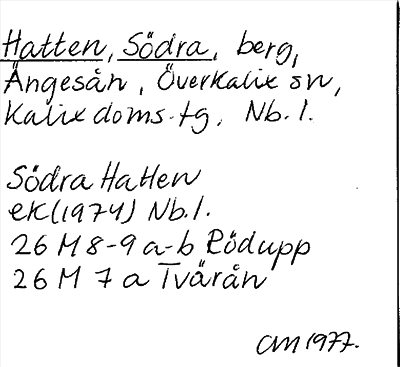 Hatten, Södra, berg,
Ängesån, Överkalix sn,
Kalix doms.tg, Nb.l.
Södra Hatten
ek(1974) Nb.l.
26 M 8-9 a-b Rödupp
26 M 7 a Tvärån
CM 1977.